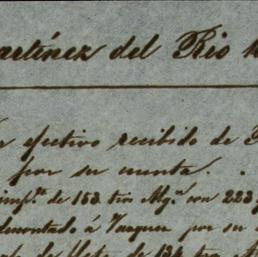 artínez del Rio
efectivo recibido de
por su cuenta.
impte. de 153 tros Algn. con 223
demontado á Vasquez por su
de flete de 134 tros